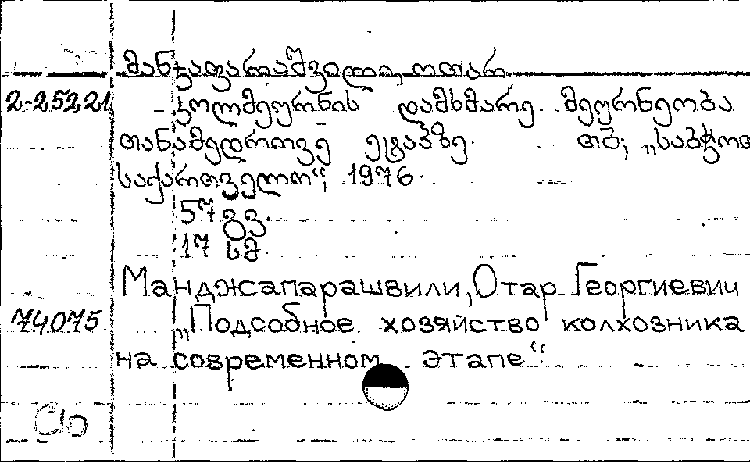 მანჯაფარაშვილი, ოთარ
2-25221 კოლმეურნის დამხმარე მეურნეობა
თანამედროვე ეტაპზე. თბ; „საბჭოთ
საქართველო“, 1976.
57 გვ.
17 სმ
Манджапарашвили, Отар Георгиевич
74075 „Подсобное хозяйство колхозника
на современном этапе“.